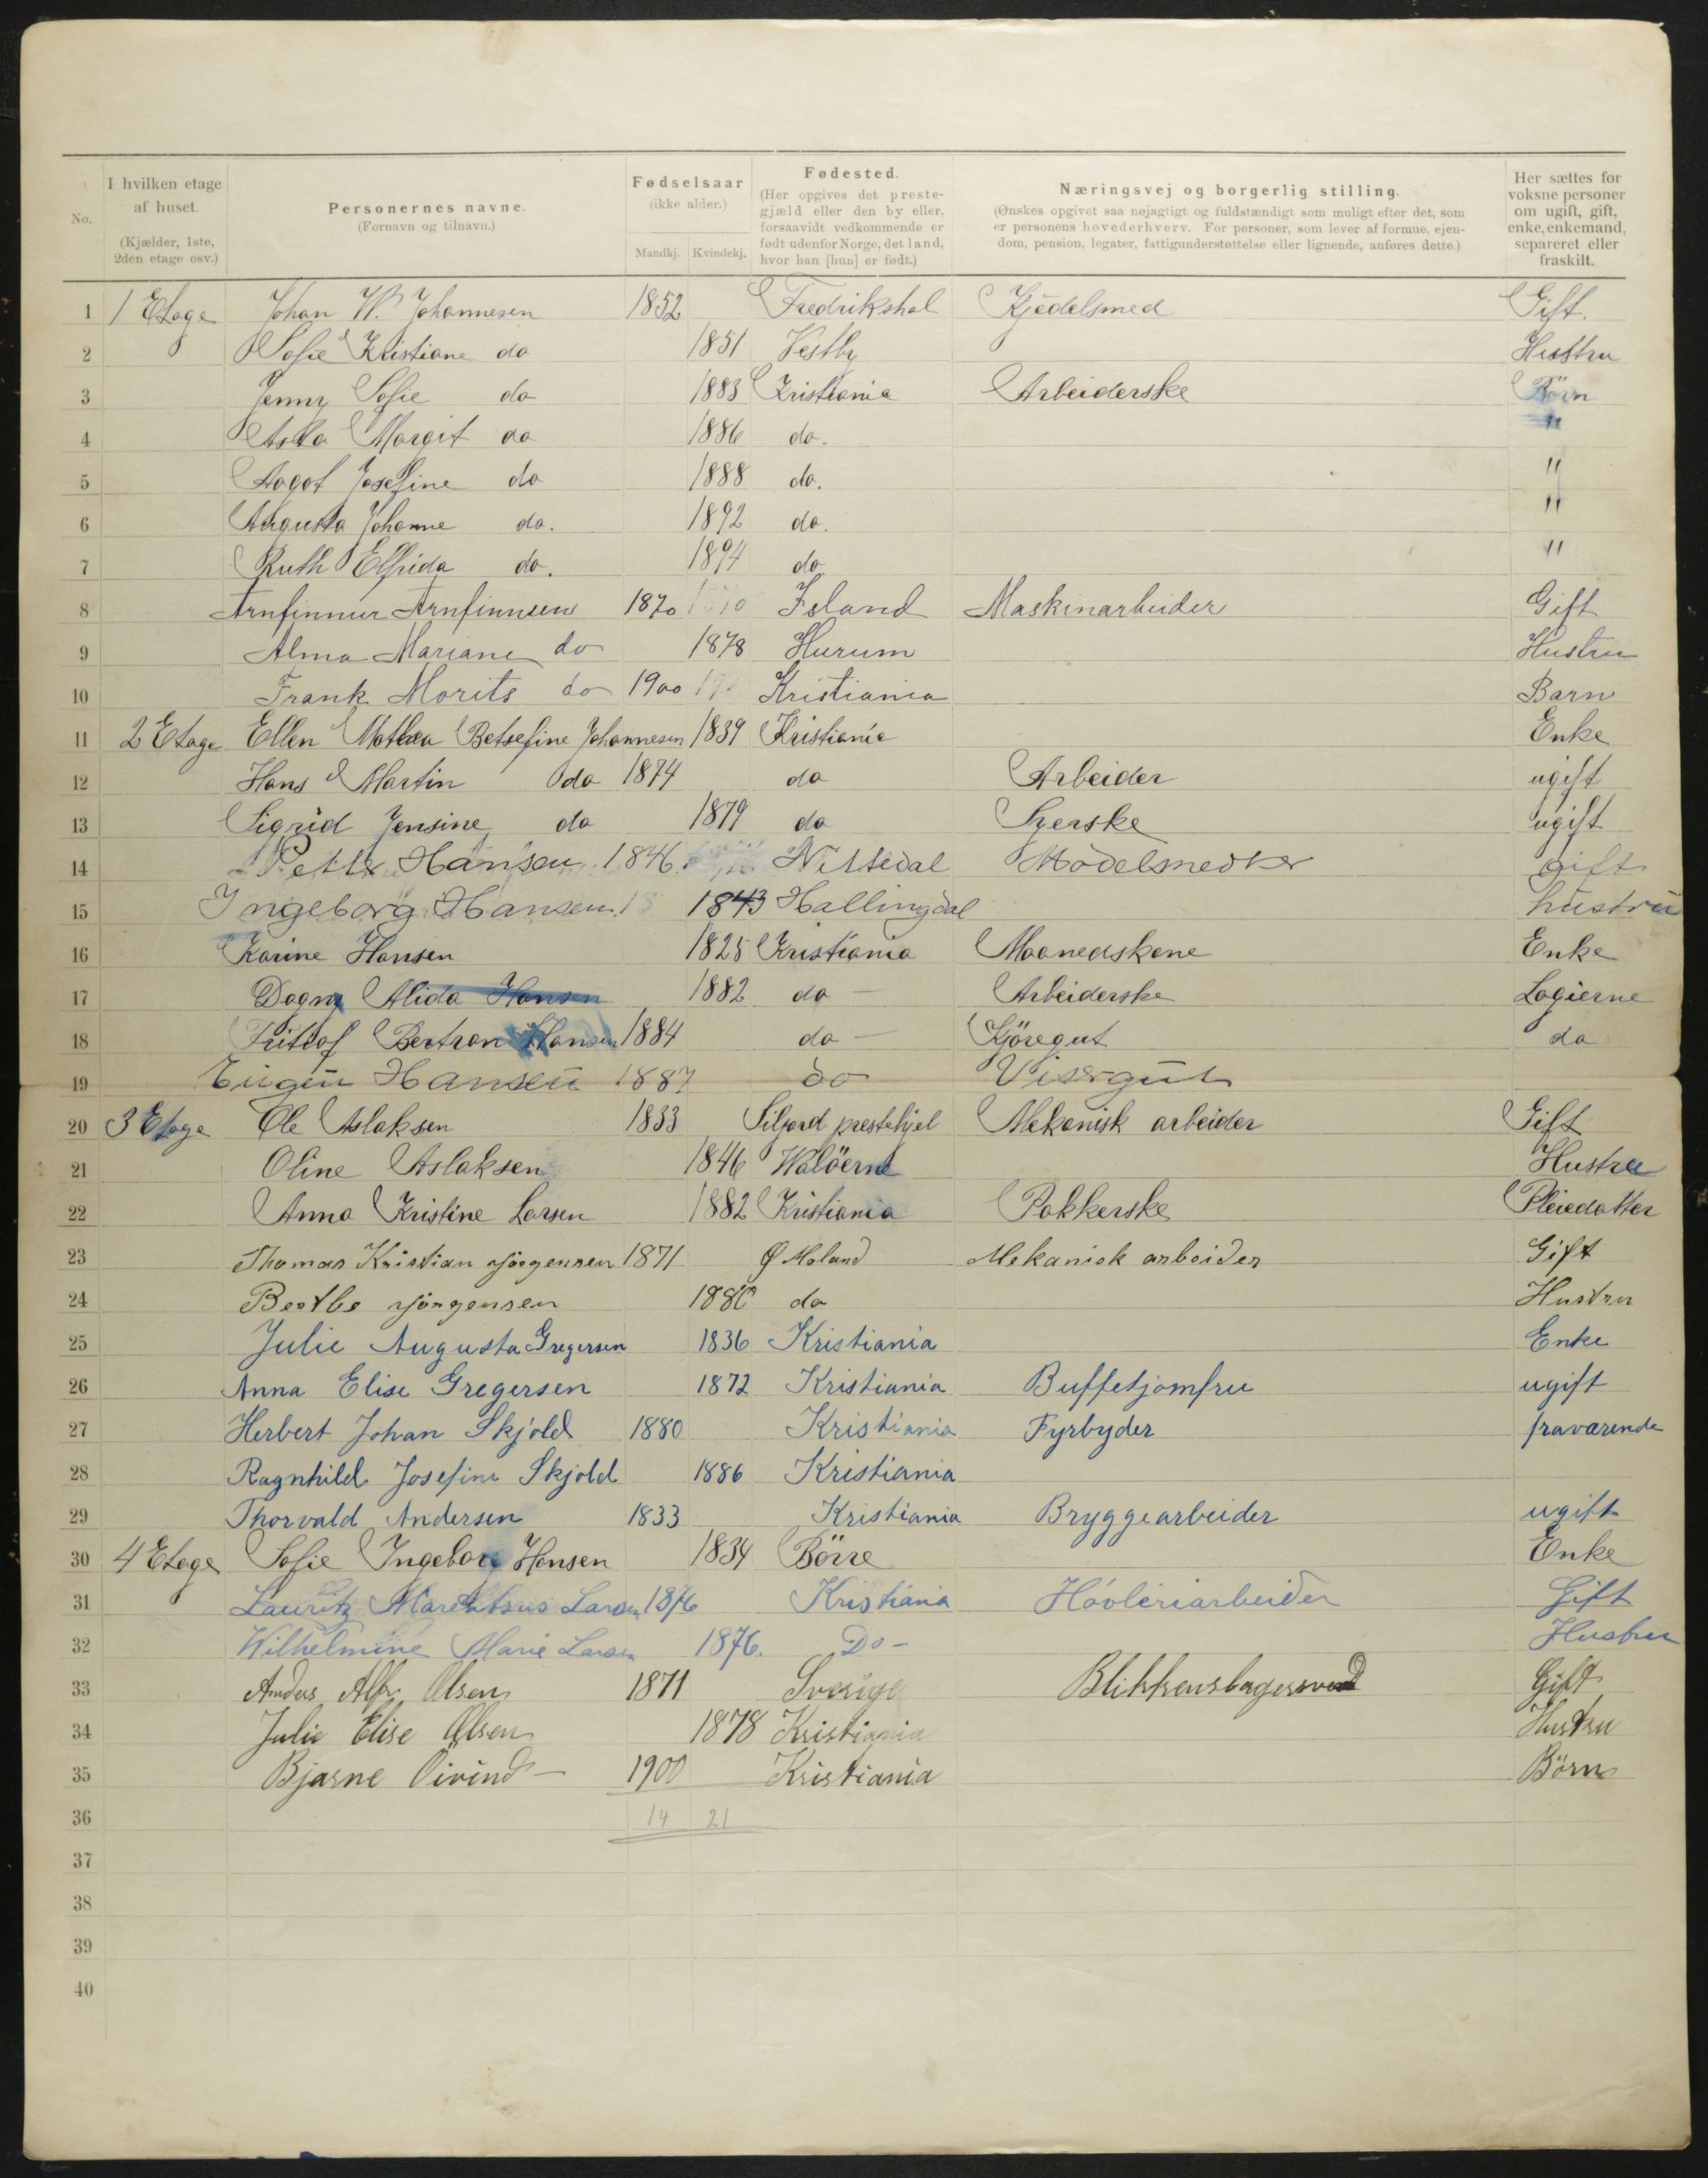 No. I hvilken etage af huset. (Kjælder, 1ste, 2den etage osv.) Personernes navne. (Fornavn og tilnavn.) Fødselsaar (ikke alder.) Mandkj. Kvindekj. Fødested. (Her opgives det prestegjæld eller den by eller, forsaavidt vedkommende er født udenfor Norge, det land, hvor han [hun] er født.) Næringsvej og borgerlig stilling. (Ønskes opgivet saa nøjagtigt og fuldstændigt som muligt efter det, som er personens hovederhverv. For personer, som lever af formue, ejendom, pension, legater, fattigunderstøttelse eller lignende, anføres dette.) Her sættes for voksne personer om ugift, gift, enke, enkemand, separeret eller fraskilt.
1 1 Etage Johan W. Johannesen 1852 Fredrikshal Kjedelsmed Gift.
2 Sofie Kristiane do 1851 Vestby Husstru
3 Jenny Sofie do 1883 Kristiania Arbeiderske Börn
4 Asta Margit do 1886 do. "
5 Aagot Josefine do 1888 do. "
6 Augusta Johanne do. 1892 do. "
7 Ruth Elfrida do. 1894 do "
8 Arnfinnur Arnfinnsen 1870 Island Maskinarbeider Gift
9 Alma Mariane do 1878 Hurum Hustru
10 Frank Morits do 1900 Kristiania Barn
11 2 Etage Ellen Mathea Betsefine Johannesen 1839 Kristiania Enke
12 Hans Martin do 1874 do Arbeider ugift
13 Sigrid Jensine do 1879 do Syerske ugift
14 Petter Hansen 1846 Nittedal Modelsnedker gift
15 Ingeborg Hansen 1843 Hallingdal hustru
16 Karine Hansen 1825 Kristiania Maanedskone Enke
17 Dagny Alida Hansen 1882 do - Arbeiderske Logierne
18 Fritiof Bertran Hansen 1884 do - Kjöregut da
19 Eugen Hansen 1887 do Visergut
20 3 Etage Ole Aslaksen 1833 Siljord prestehjel Mekanisk arbeider Gift
21 Oline Aslaksen 1846 Walöerne Hustru
22 Anna Kristine Larsen 1882 Kristiania Pakkerske Pleiedatter
23 Thomas Kristian Jörgensen 1871 Ø Moland Mekanisk arbeider Gift
24 Berthe Jörgensen 1880 do Hustru
25 Julie Augusta Gregersen 1836 Kristiania Enke
26 Anna Elise Gregersen 1872 Kristiania Buffetjomfru ugift
27 Herbert Johan Skjold 1880 Kristiania Fyrbyder fraværende
28 Ragnhild Josefine Skjold 1886 Kristiania
29 Thorvald Andersen 1833 Kristiania Bryggearbeider ugift
30 4 Etage Sofie Ingeborg Hansen 1834 Börre Enke
31 Lauritz Larsen 1876 Kristiania Hövleriarbeider Gift
32 Wilhelmine Marie Larsen 1876. Do - Hustru
33 Anders Alfr. Olsen 1871 Sverige Blikkenslagersvend Gift
34 Julie Elise Olsen 1878 Kristiania Hustru
35 Bjarne Öivind - 1900 Kristiania Börn
36 14 21
37
38
39
40